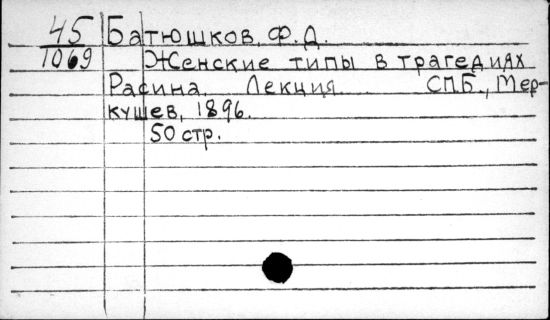 45 Батюшков, Ф.Д.
1069 Женские типы в трагедиях
Расина. Лекция. СПБ., Мер-
кушев, 1896.
50 стр.